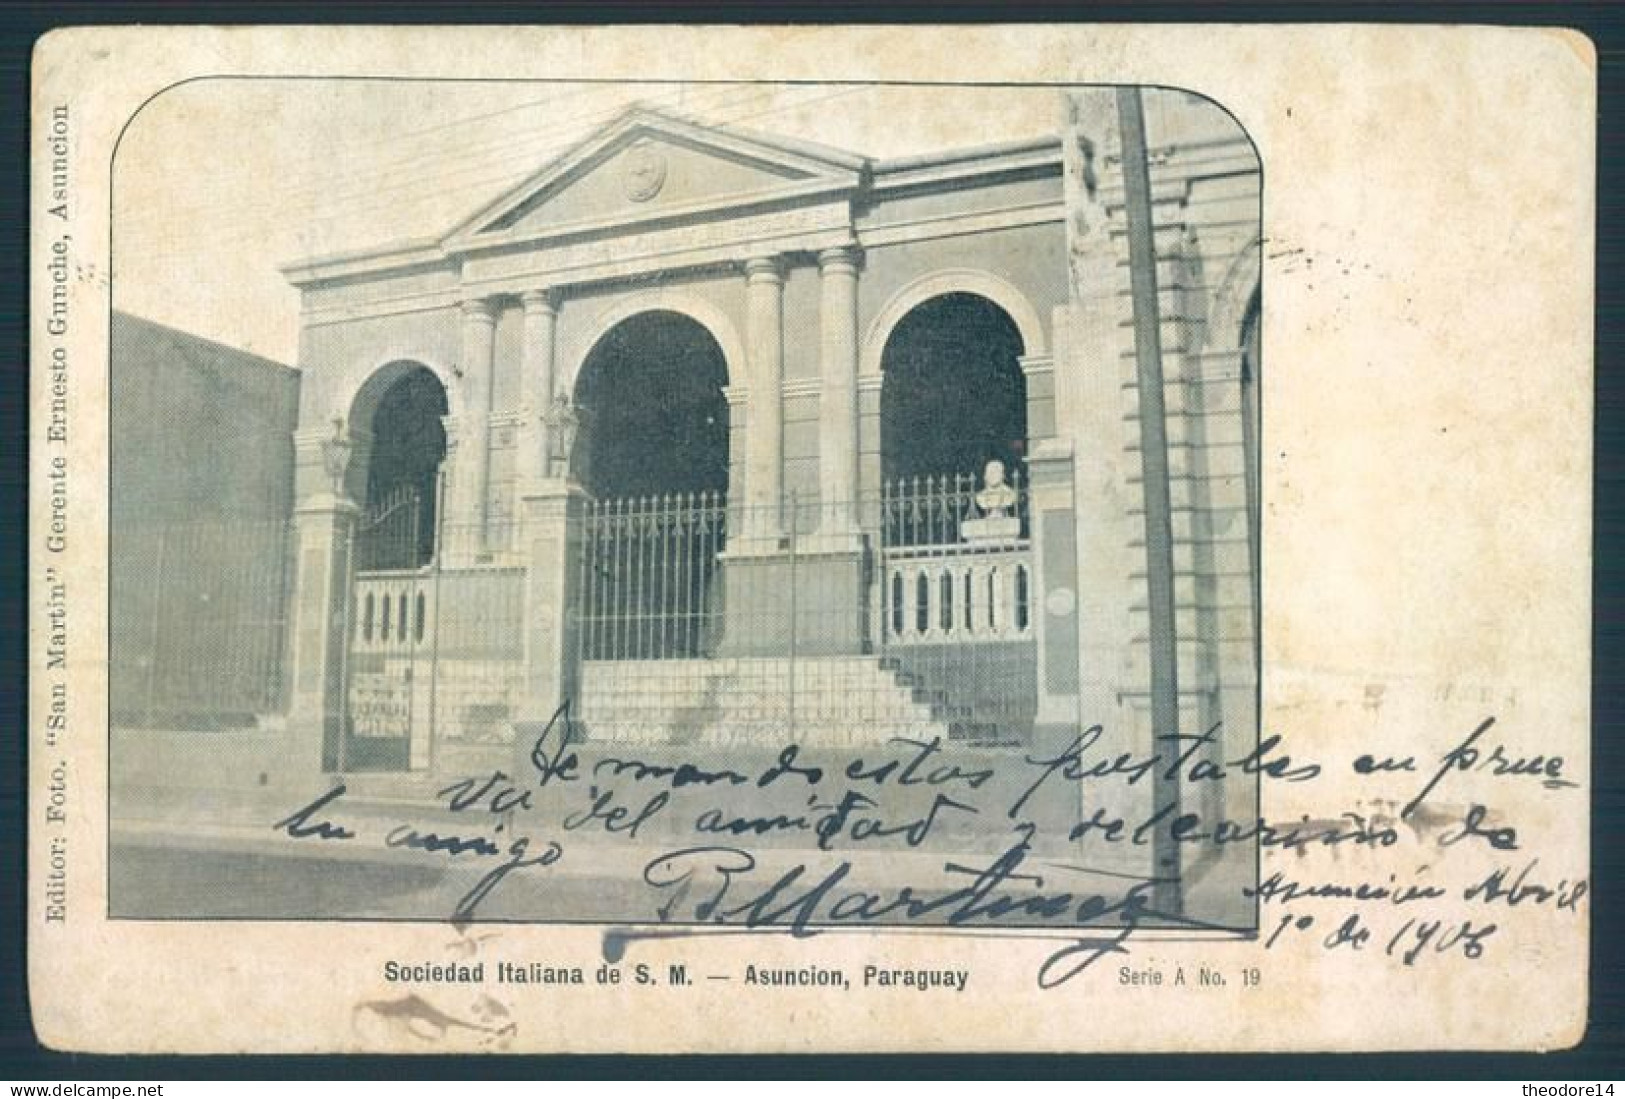 Editor: Foto. "San Martin" Gerente Ernesto Gunche, Asuncion
Te mando estas postales en prue
va del amistad y del cariño de
tu amigo
B. Martinez
Asuncion Abril
1° de 1906
Sociedad Italiana de S. M. — Asuncion, Paraguay
Serie A No. 19
www.delcampe.net
theodore14